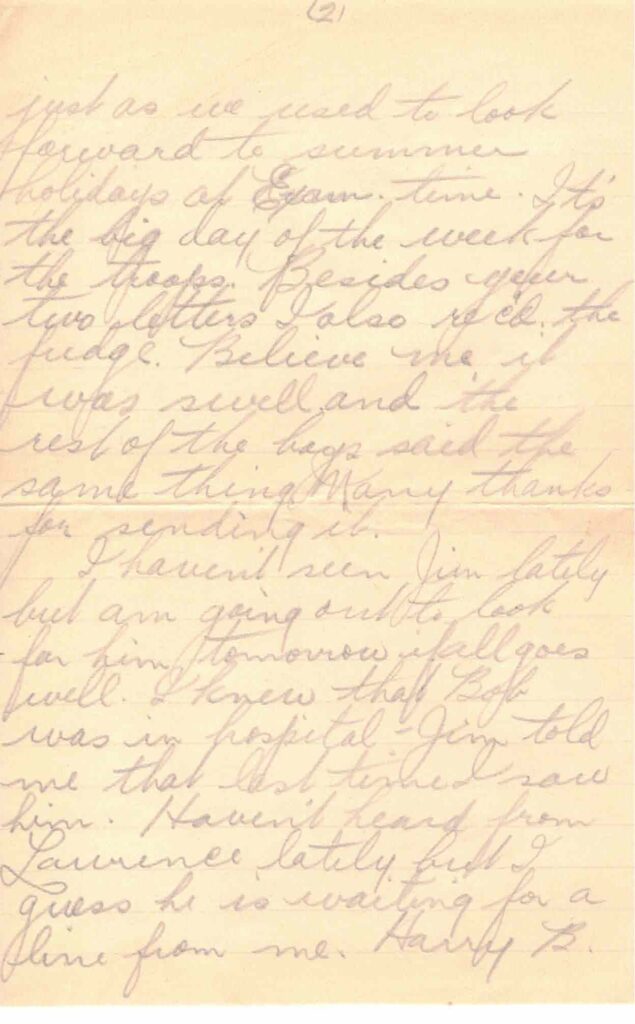 (2)
just as we used to look
forward to summer
holidays at Exam. time. It's
the big day of the week for
the troops. Besides your
two letters I also rec'd. the
fudge. Believe me it
was swell and the
rest of the boys said the
same thing. Many thanks
for sending it.
I haven't seen Jim lately
but am going out to look
for him tomorrow if all goes
well. I knew that Bob
was in hospital - Jim told
me that last time I saw
him. Haven't heard from
Lawrence lately but I
guess he is waiting for a
line from me. Harry B.